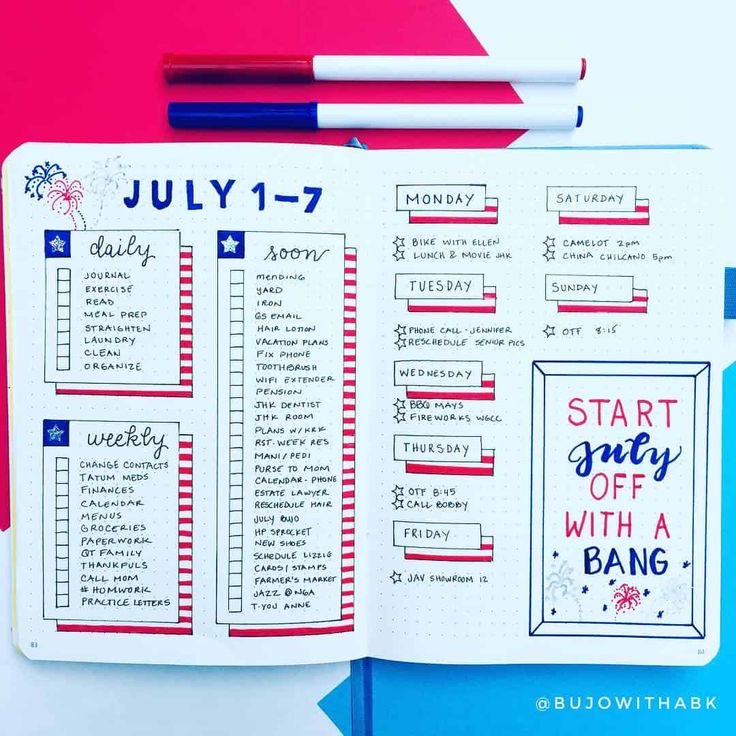 JULY 1-7
daily
JOURNAL
EXERCISE
READ
MEAL PREP
STRAIGHTEN
LAUNDRY
CLEAN
ORGANIZE
weekly
CHANGE CONTACTS
TATUM MEDS
FINANCES
CALENDAR
MENUS
GROCERIES
PAPERWORK
QT FAMILY
THANKFULS
CALL MOM
# HOMWORK
PRACTICE LETTERS
soon
MENDING
YARD
IRON
GS EMAIL
HAIR LOTION
VACATION PLANS
FIX PHONE
TOOTHBRUSH
WIFI EXTENDER
PENSION
JHK DENTIST
JHK ROOM
PLANS W/KRK
RST. WEEK RES
MANI/PEDI
PURSE TO MOM
CALENDAR-PHONE
ESTATE LAWYER
RESCHEDULE HAIR
JULY BUJO
HP SPROCKET
NEW SHOES
SCHEDULE LIZZIG
CARDS/STAMPS
FARMER'S MARKET
JAZZ @NGA
T-YOU ANNE
MONDAY
BIKE WITH ELLEN
LUNCH & MOVIE JHK
TUESDAY
PHONE CALL - JENNIFER
RESCHEDULE SENIOR PICS
WEDNESDAY
BBQ MAYS
FIREWORKS WGCC
THURSDAY
OTF 8:45
CALL BOBBY
FRIDAY
JAV SHOWROOM 12
SATURDAY
CAMELOT 2pm
CHINA CHILCANO 5pm
SUNDAY
OTF 8:15
START
July
OFF
WITH A
BANG
@BUJOWITHABK